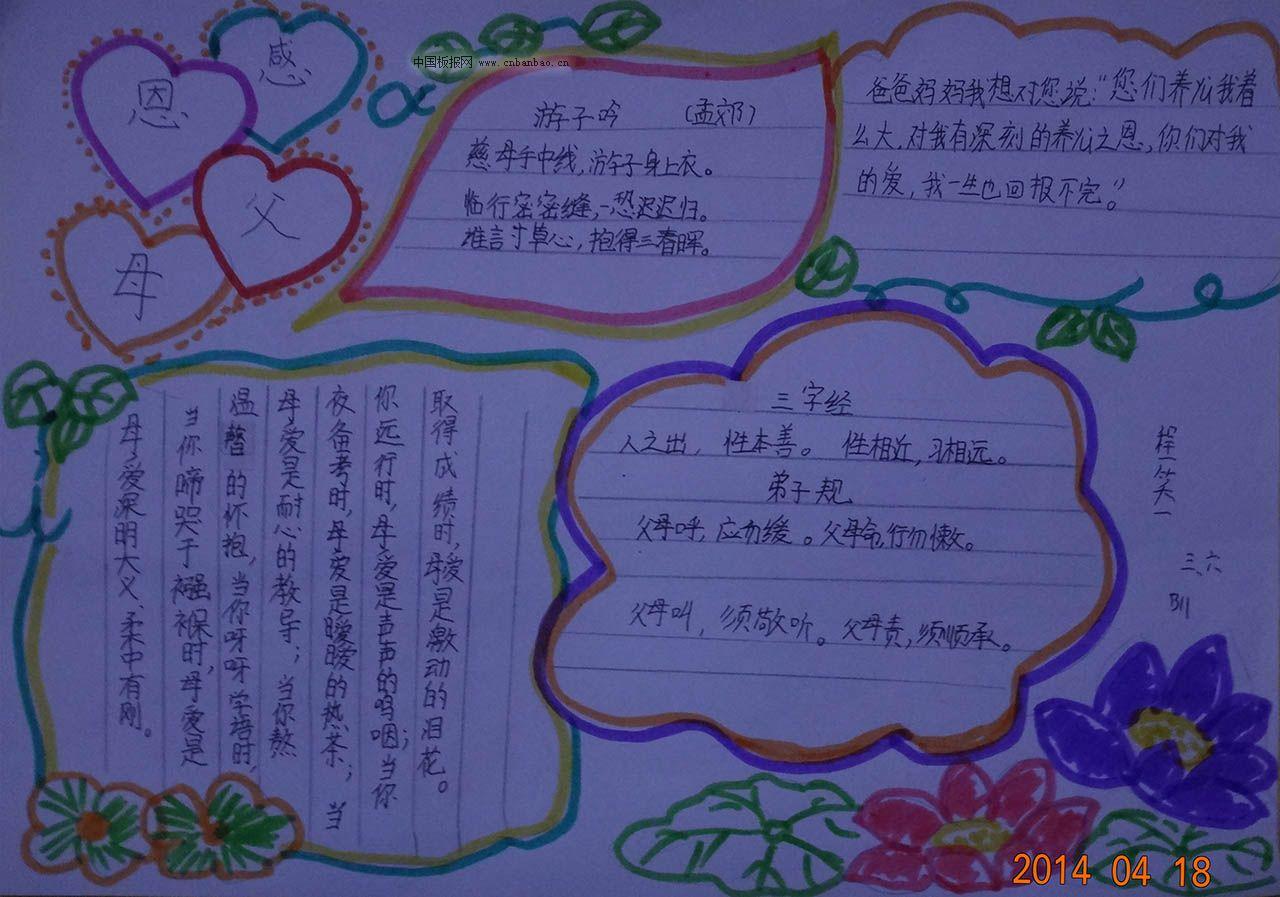 感
恩
父
母
中国板报网 www.cnbanbao.cn
游子吟 (孟郊)
慈母手中线,游子身上衣。
临行密密缝,一恐迟迟归。
谁言寸草心,抱得三春晖。
爸爸妈妈我想对您说:"您们养心我着
么大,对我有深刻的养心之恩,你们对我
的爱,我一生也回报不完。"
母爱深明大义、柔中有刚。
当你啼哭于襁褓时,母爱是
温馨的怀抱,当你呀呀学语时,
母爱是耐心的教导;当你熬
夜备考时,母爱是暖暖的热茶;当
你远行时,母爱是声声的呜咽;当你
取得成绩时,母爱是激动的泪花。
三字经
人之出,性本善。性相近,习相远。
弟子规
父母呼,应勿缓。父母命,行勿懒。
父母叫,须敬听。父母责,须顺承。
程笑一
三、六
2014 04 18